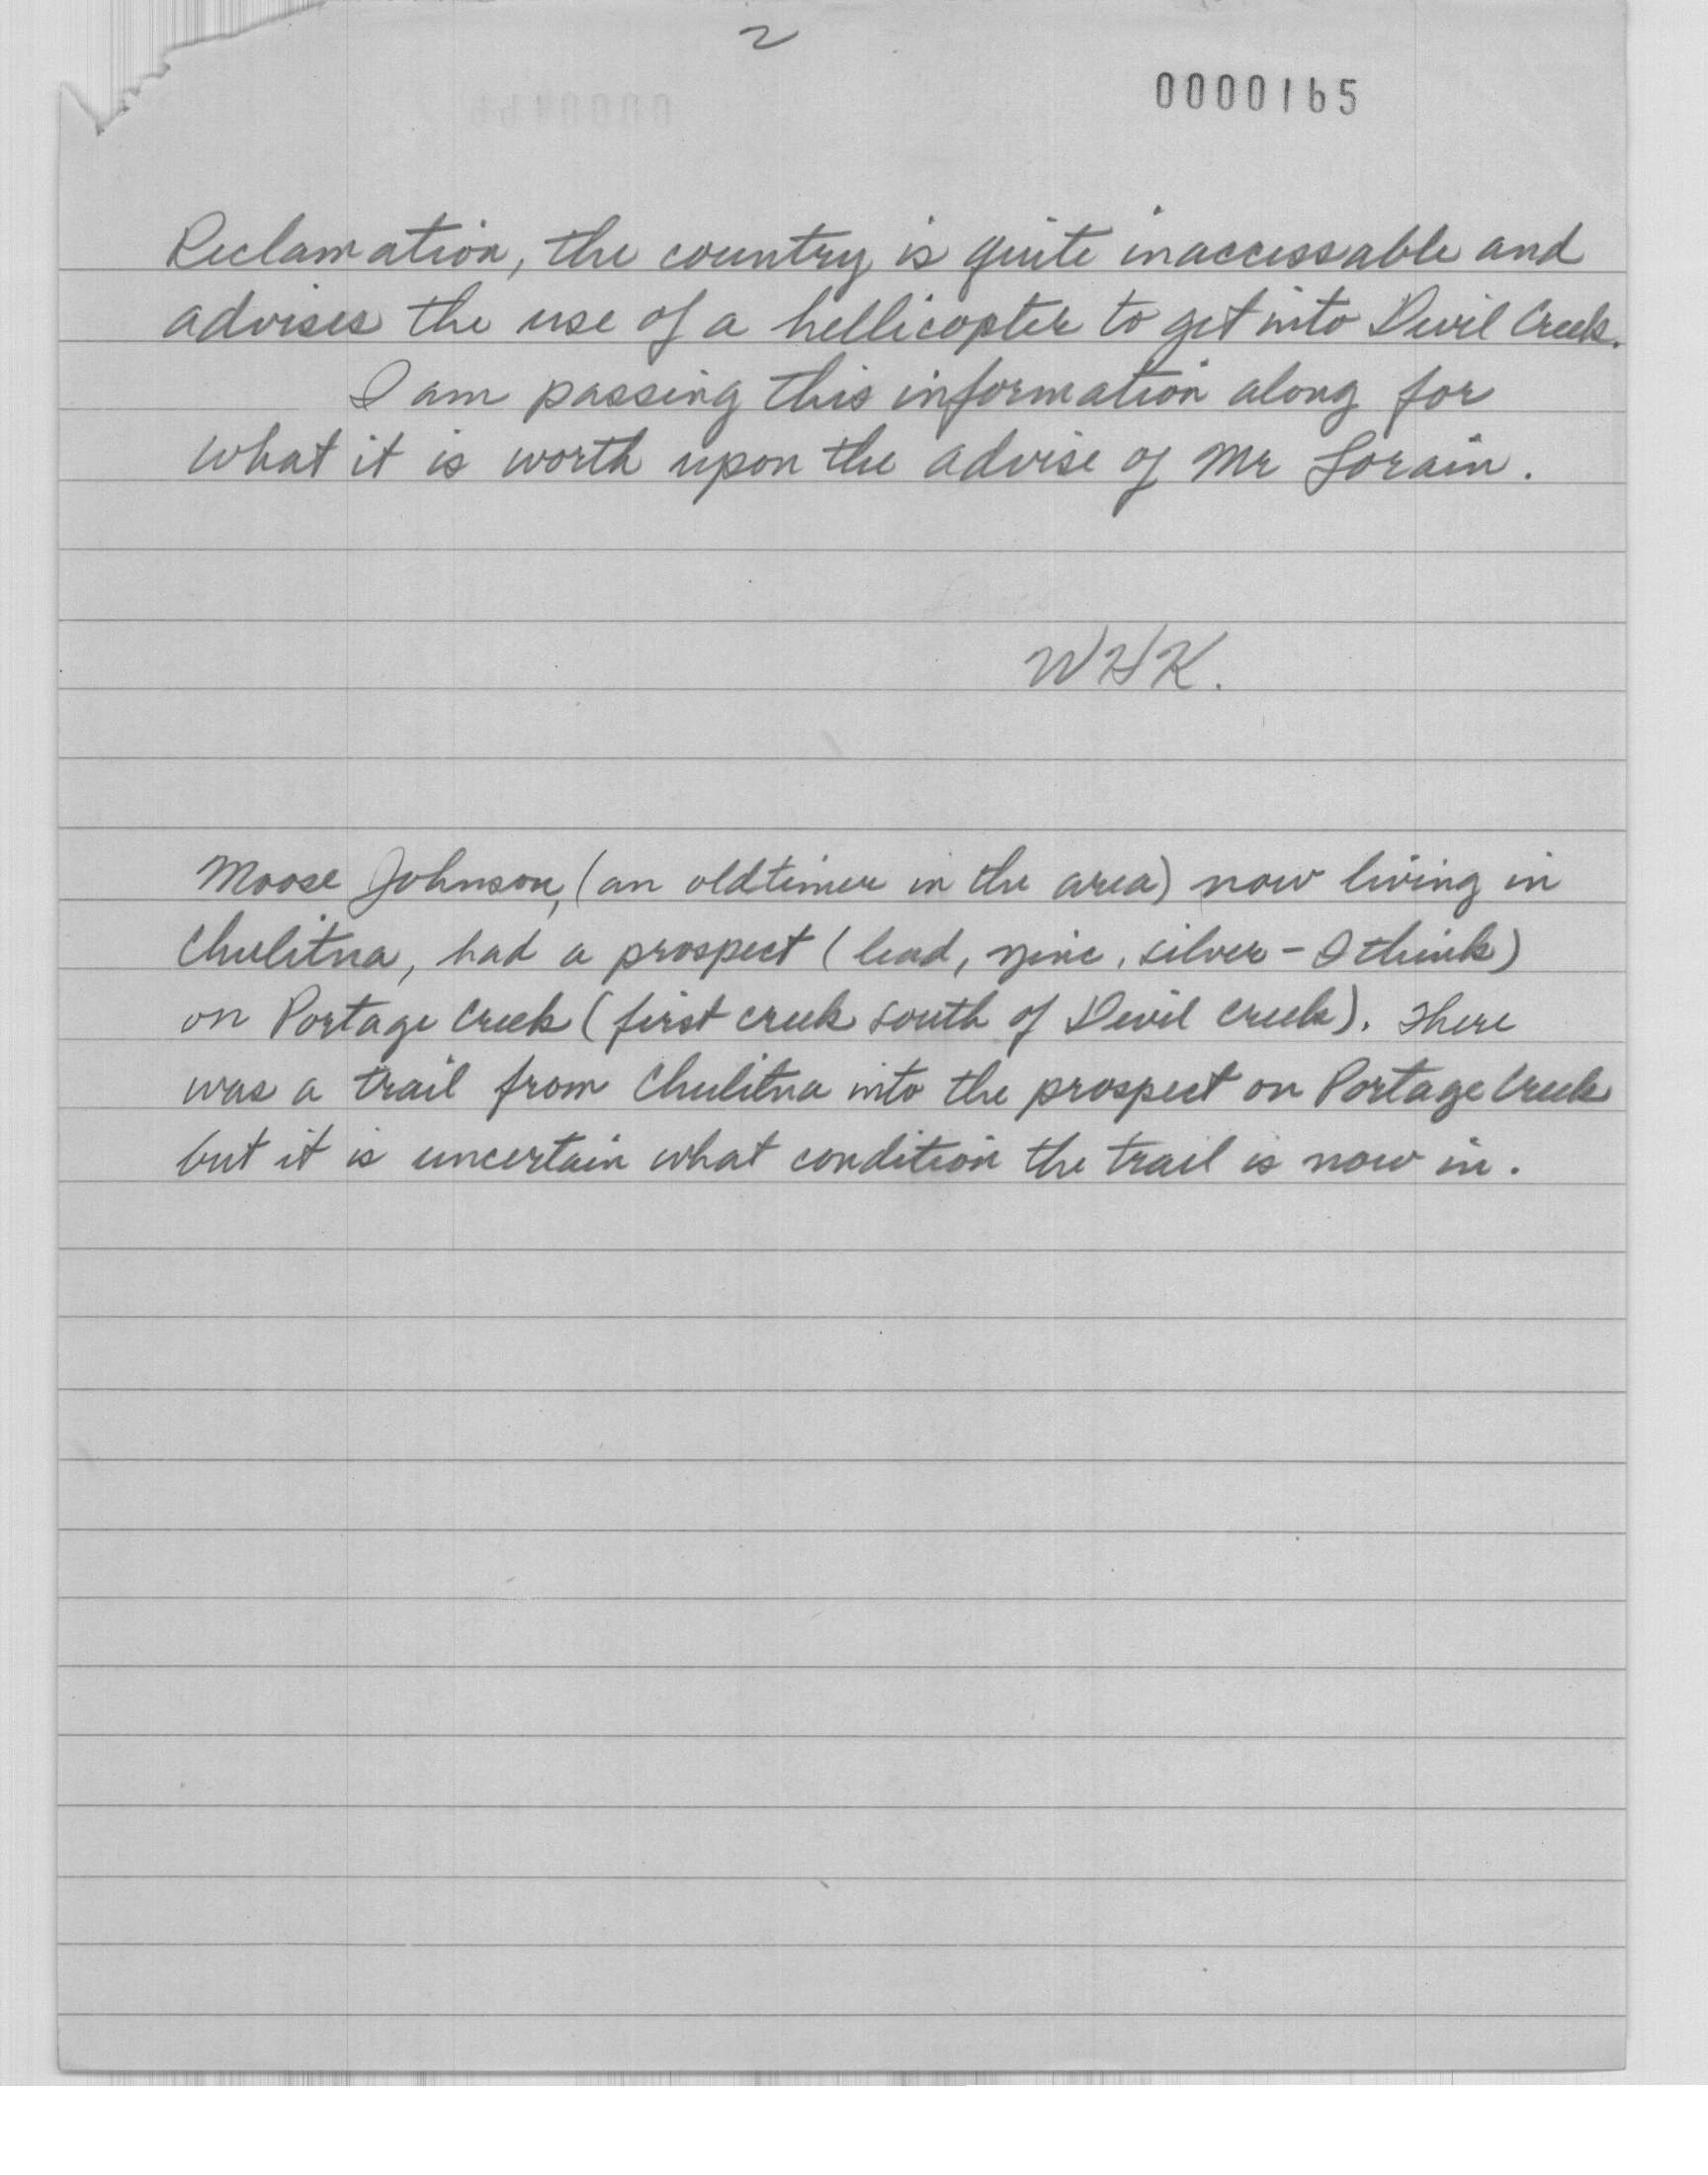 2
0000165
Reclamation, the country is quite inaccessable and
advises the use of a hellicopter to get into Devil Creek.
I am passing this information along for
what it is worth upon the advise of Mr Lorain.
WHK.
Moose Johnson, (an oldtimer in the area) now living in
Chulitna, had a prospect (lead, zinc, silver - I think)
on Portage Creek (first creek south of Devil Creek). There
was a trail from Chulitna into the prospect on Portage Creek
but it is uncertain what condition the trail is now in.